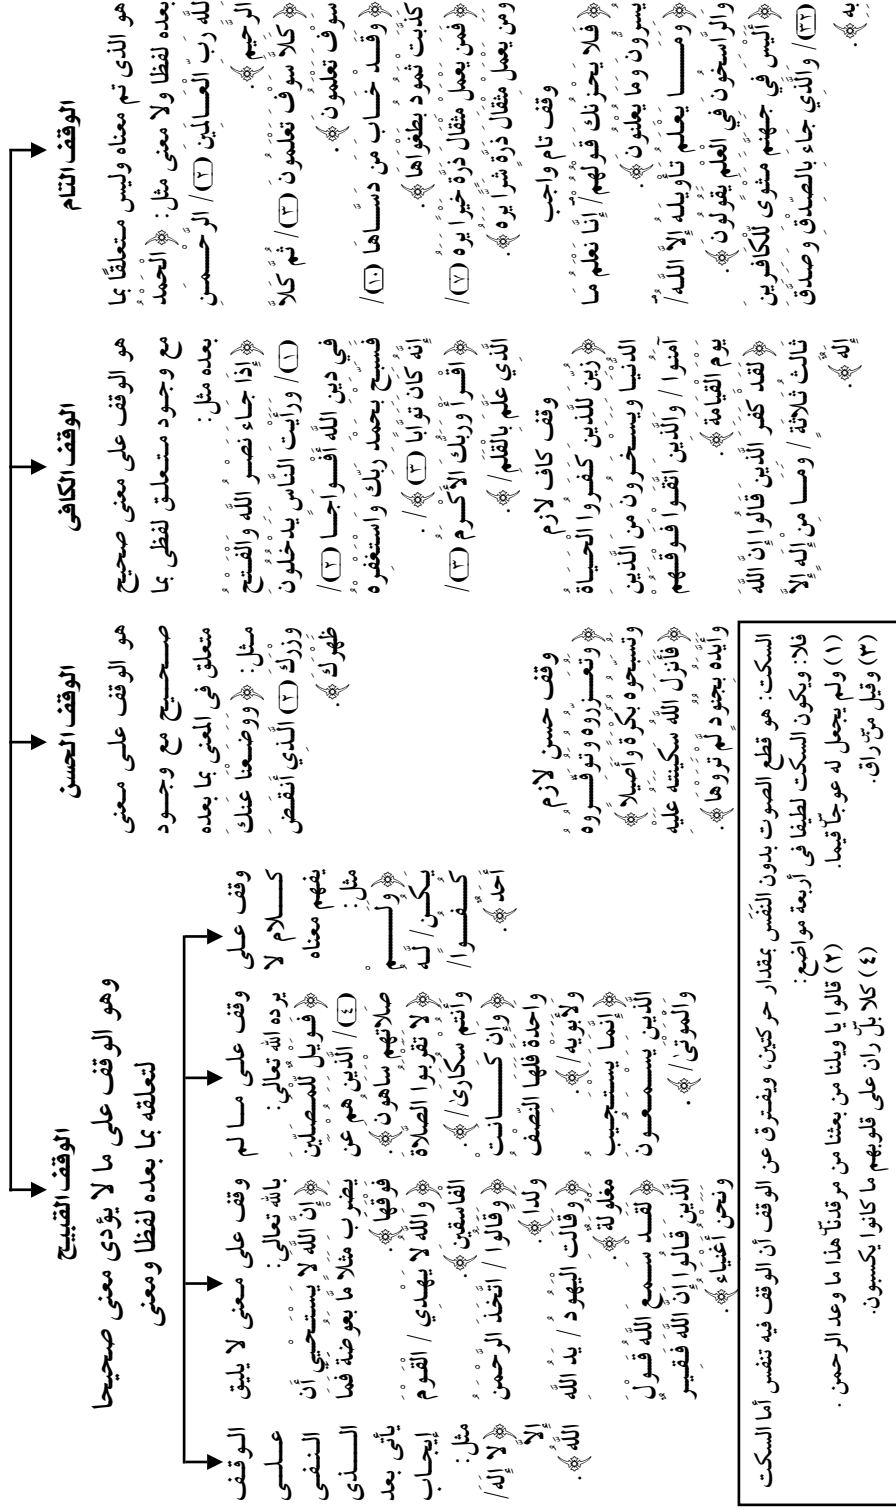 الوقف التام
هو الذى تم معناه وليس متعلقًا بما
بعده لفظا ولا معنى مثل: ﴿ الْحَمْدُ
لِلَّهِ رَبِّ الْعَالَمِينَ (٢) / الرَّحْمَنِ
الرَّحِيمِ ﴾.
﴿ كَلَّا سَوْفَ تَعْلَمُونَ (٣) / ثُمَّ كَلَّا
سَوْفَ تَعْلَمُونَ ﴾.
﴿ وَقَدْ خَابَ مَن دَسَّاهَا (١٠) /
كَذَّبَتْ ثَمُودُ بِطَغْوَاهَا ﴾.
﴿ فَمَن يَعْمَلْ مِثْقَالَ ذَرَّةٍ خَيْرًا يَرَهُ (٧) /
وَمَن يَعْمَلْ مِثْقَالَ ذَرَّةٍ شَرًّا يَرَهُ ﴾.
وقف تام واجب
﴿ فَلا يَحْزُنكَ قَوْلُهُمْ / إِنَّا نَعْلَمُ مَا
يُسِرُّونَ وَمَا يُعْلِنُونَ ﴾.
﴿ وَمَا يَعْلَمُ تَأْوِيلَهُ إِلاَّ اللَّهُ /
وَالرَّاسِخُونَ فِي الْعِلْمِ يَقُولُونَ ﴾.
﴿ أَلَيْسَ فِي جَهَنَّمَ مَثْوًى لِّلْكَافِرِينَ
(٣٢) / وَالَّذِي جَاءَ بِالصِّدْقِ وَصَدَّقَ
بِهِ ﴾.
الوقف الكافى
هو الوقف على معنى صحيح
مع وجود متعلق لفظى بما
بعده مثل:
﴿ إِذَا جَاءَ نَصْرُ اللَّهِ وَالْفَتْحُ
(١) / وَرَأَيْتَ النَّاسَ يَدْخُلُونَ
فِي دِينِ اللَّهِ أَفْوَاجًا (٢) /
فَسَبِّحْ بِحَمْدِ رَبِّكَ وَاسْتَغْفِرْهُ
إِنَّهُ كَانَ تَوَّابًا (٣) ﴾ /.
﴿ اقْرَأْ وَرَبُّكَ الأَكْرَمُ (٣) /
الَّذِي عَلَّمَ بِالْقَلَمِ / ﴾.
وقف كاف لازم
﴿ زُيِّنَ لِلَّذِينَ كَفَرُوا الْحَيَاةُ
الدُّنْيَا وَيَسْخَرُونَ مِنَ الَّذِينَ
آمَنُوا / وَالَّذِينَ اتَّقَوْا فَوْقَهُمْ
يَوْمَ الْقِيَامَةِ ﴾.
﴿ لَقَدْ كَفَرَ الَّذِينَ قَالُوا إِنَّ اللَّهَ
ثَالِثُ ثَلاثَةٍ / وَمَا مِنْ إِلَهٍ إِلاَّ
إِلَهٌ ﴾.
الوقف الحسن
هو الوقف على معنى
صحيح مع وجود
متعلق فى المعنى بما بعده
مثل: ﴿ وَوَضَعْنَا عَنكَ
وِزْرَكَ (٢) الَّذِي أَنقَضَ
ظَهْرَكَ ﴾.
وقف حسن لازم
﴿ وَتُعَزِّرُوهُ وَتُوَقِّرُوهُ
وَتُسَبِّحُوهُ بُكْرَةً وَأَصِيلاً ﴾
﴿ فَأَنزَلَ اللَّهُ سَكِينَتَهُ عَلَيْهِ
وَأَيَّدَهُ بِجُنُودٍ لَّمْ تَرَوْهَا ﴾.
الوقف القبيح
وهو الوقف على ما لا يؤدى معنى صحيحا
لتعلقه بما بعده لفظا ومعنى
وقف على
كلام لا
يفهم معناه
مثل:
﴿ وَلَمْ
يَكُن / لَّهُ
كُفُوًا /
أَحَدٌ ﴾.
وقف على ما لم
يرده الله تعالى:
﴿ فَوَيْلٌ لِّلْمُصَلِّينَ
(٤) / الَّذِينَ هُمْ عَن
صَلاتِهِمْ سَاهُونَ ﴾.
﴿ لا تَقْرَبُوا الصَّلاةَ
وَأَنتُمْ سُكَارَىٰ / ﴾.
﴿ وَإِن كَانَتْ
وَاحِدَةً فَلَهَا النِّصْفُ
وَلأَبَوَيْهِ / ﴾.
﴿ إِنَّمَا يَسْتَجِيبُ
الَّذِينَ يَسْمَعُونَ
وَالْمَوْتَىٰ / ﴾.
وقف على معنى لا يليق
بالله تعالى:
﴿ إِنَّ اللَّهَ لا يَسْتَحْيِي أَن
يَضْرِبَ مَثَلاً مَّا بَعُوضَةً فَمَا
فَوْقَهَا ﴾.
﴿ وَاللَّهُ لا يَهْدِي / الْقَوْمَ
الْفَاسِقِينَ ﴾.
﴿ وَقَالُوا / اتَّخَذَ الرَّحْمَنُ
وَلَدًا ﴾.
﴿ وَقَالَتِ الْيَهُودُ / يَدُ اللَّهِ
مَغْلُولَةٌ ﴾.
﴿ لَقَدْ سَمِعَ اللَّهُ قَوْلَ
الَّذِينَ قَالُوا إِنَّ اللَّهَ فَقِيرٌ
وَنَحْنُ أَغْنِيَاءُ ﴾.
الوقف
على
النفى
الذى
يأتى بعد
إيجاب
مثل:
﴿ لا إِلَهَ /
إِلاَّ
اللَّهُ ﴾.
السكت: هو قطع الصوت بدون النَّفَس بمقدار حركتين، ويفترق عن الوقف أن الوقف فيه تنفس أما السكت
فلا: ويكون السكت لطيفا فى أربعة مواضع:
(١) ولم يجعل له عوجا قيما.
(٢) قالوا يا ويلنا من بعثنا من مرقدنا هذا ما وعد الرحمن .
(٣) وقيل من راق.
(٤) كلا بل ران على قلوبهم ما كانوا يكسبون.